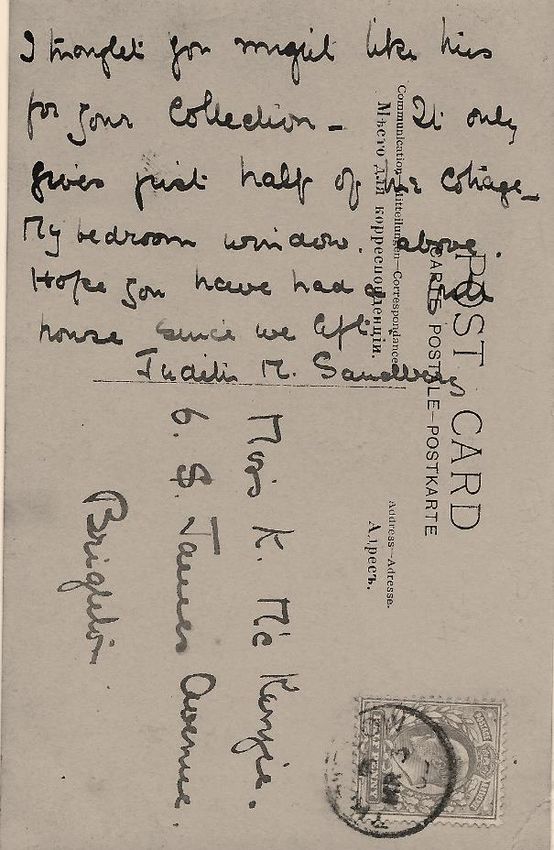 I thought you might like this
for your Collection — It only
gives just half of the Cottage —
My bedroom window. above.
Hope you have had a
house since we left
Judith M. Sandberg
POST CARD
CARTE POSTALE—POSTKARTE
Communication—Mitteilungen—Correspondance
Мѣсто для корреспонденціи.
Address—Adresse.
Адресъ.
Miss K. McKenzie.
6. St. James Avenue.
Brighton